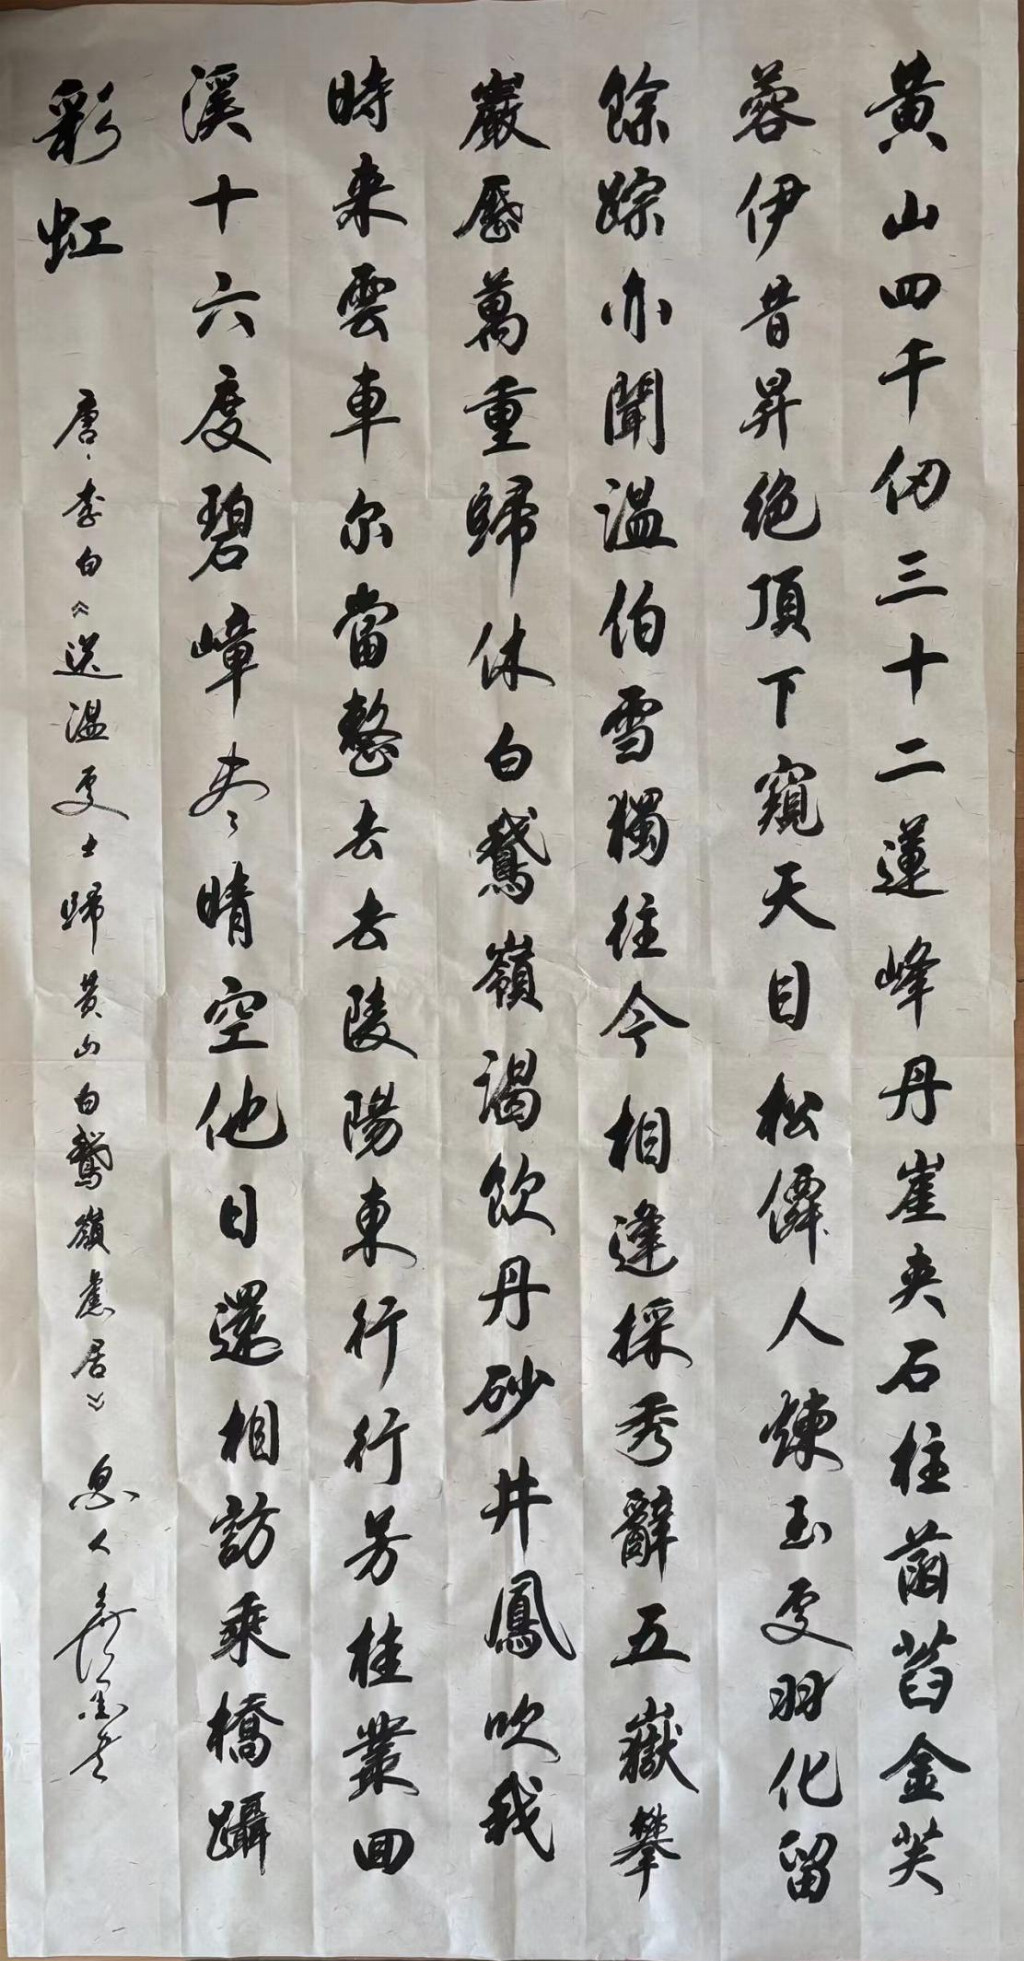 黄山四千仞三十二蓮峰丹崖夾石柱菡萏金芙
蓉伊昔昇絶頂下窺天目松僊人煉玉處羽化留
餘踪亦聞溫伯雪獨往今相逢採秀辭五嶽攀
巖歷萬重歸休白鵞嶺渴飲丹砂井鳳吹我
時来雲車尔當整去去陵陽東行行芳桂叢回
溪十六度碧嶂尽晴空他日還相訪乘橋躡
彩虹
唐、李白《送温處士歸黄山白鵞嶺舊居》